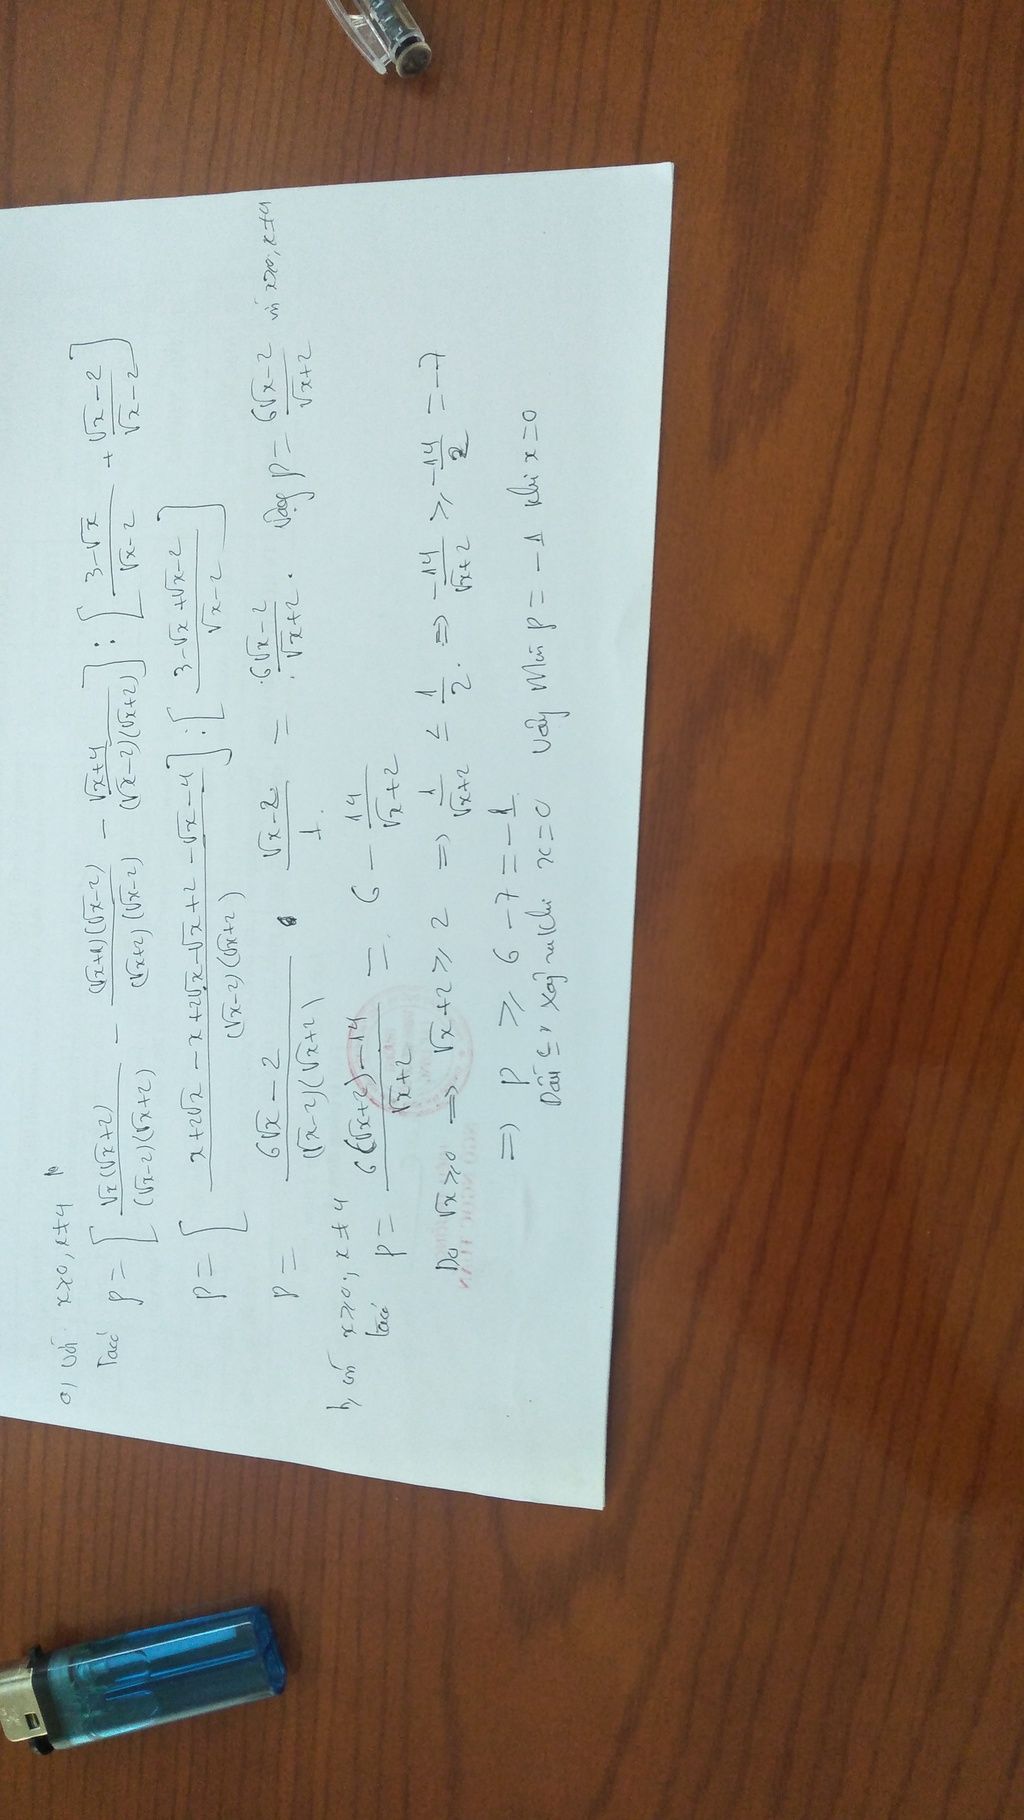 a, Với x≥0, x≠4
Ta có P = [√x(√x+2)/(√x-2)(√x+2) - (√x+1)(√x-2)/(√x+2)(√x-2) - √x+4/(√x-2)(√x+2)] : [3-√x/√x-2 + √x-2/√x-2]
P = [x+2√x-x+2√x-√x+2-√x-4/(√x-2)(√x+2)] : [3-√x+√x-2/√x-2]
P = 6√x-2/(√x-2)(√x+2) . √x-2/1 = 6√x-2/√x+2. Vậy P = 6√x-2/√x+2 với x≥0, x≠4
b, với x≥0; x≠4
ta có P = 6(√x+2)-14/√x+2 = 6 - 14/√x+2
Do √x≥0 => √x+2≥2 => 1/√x+2 ≤ 1/2. => -14/√x+2 ≥ -14/2 = -7
=> P ≥ 6-7 = -1
Dấu "=" xảy ra khi x=0 Vậy Min P = -1 khi x=0